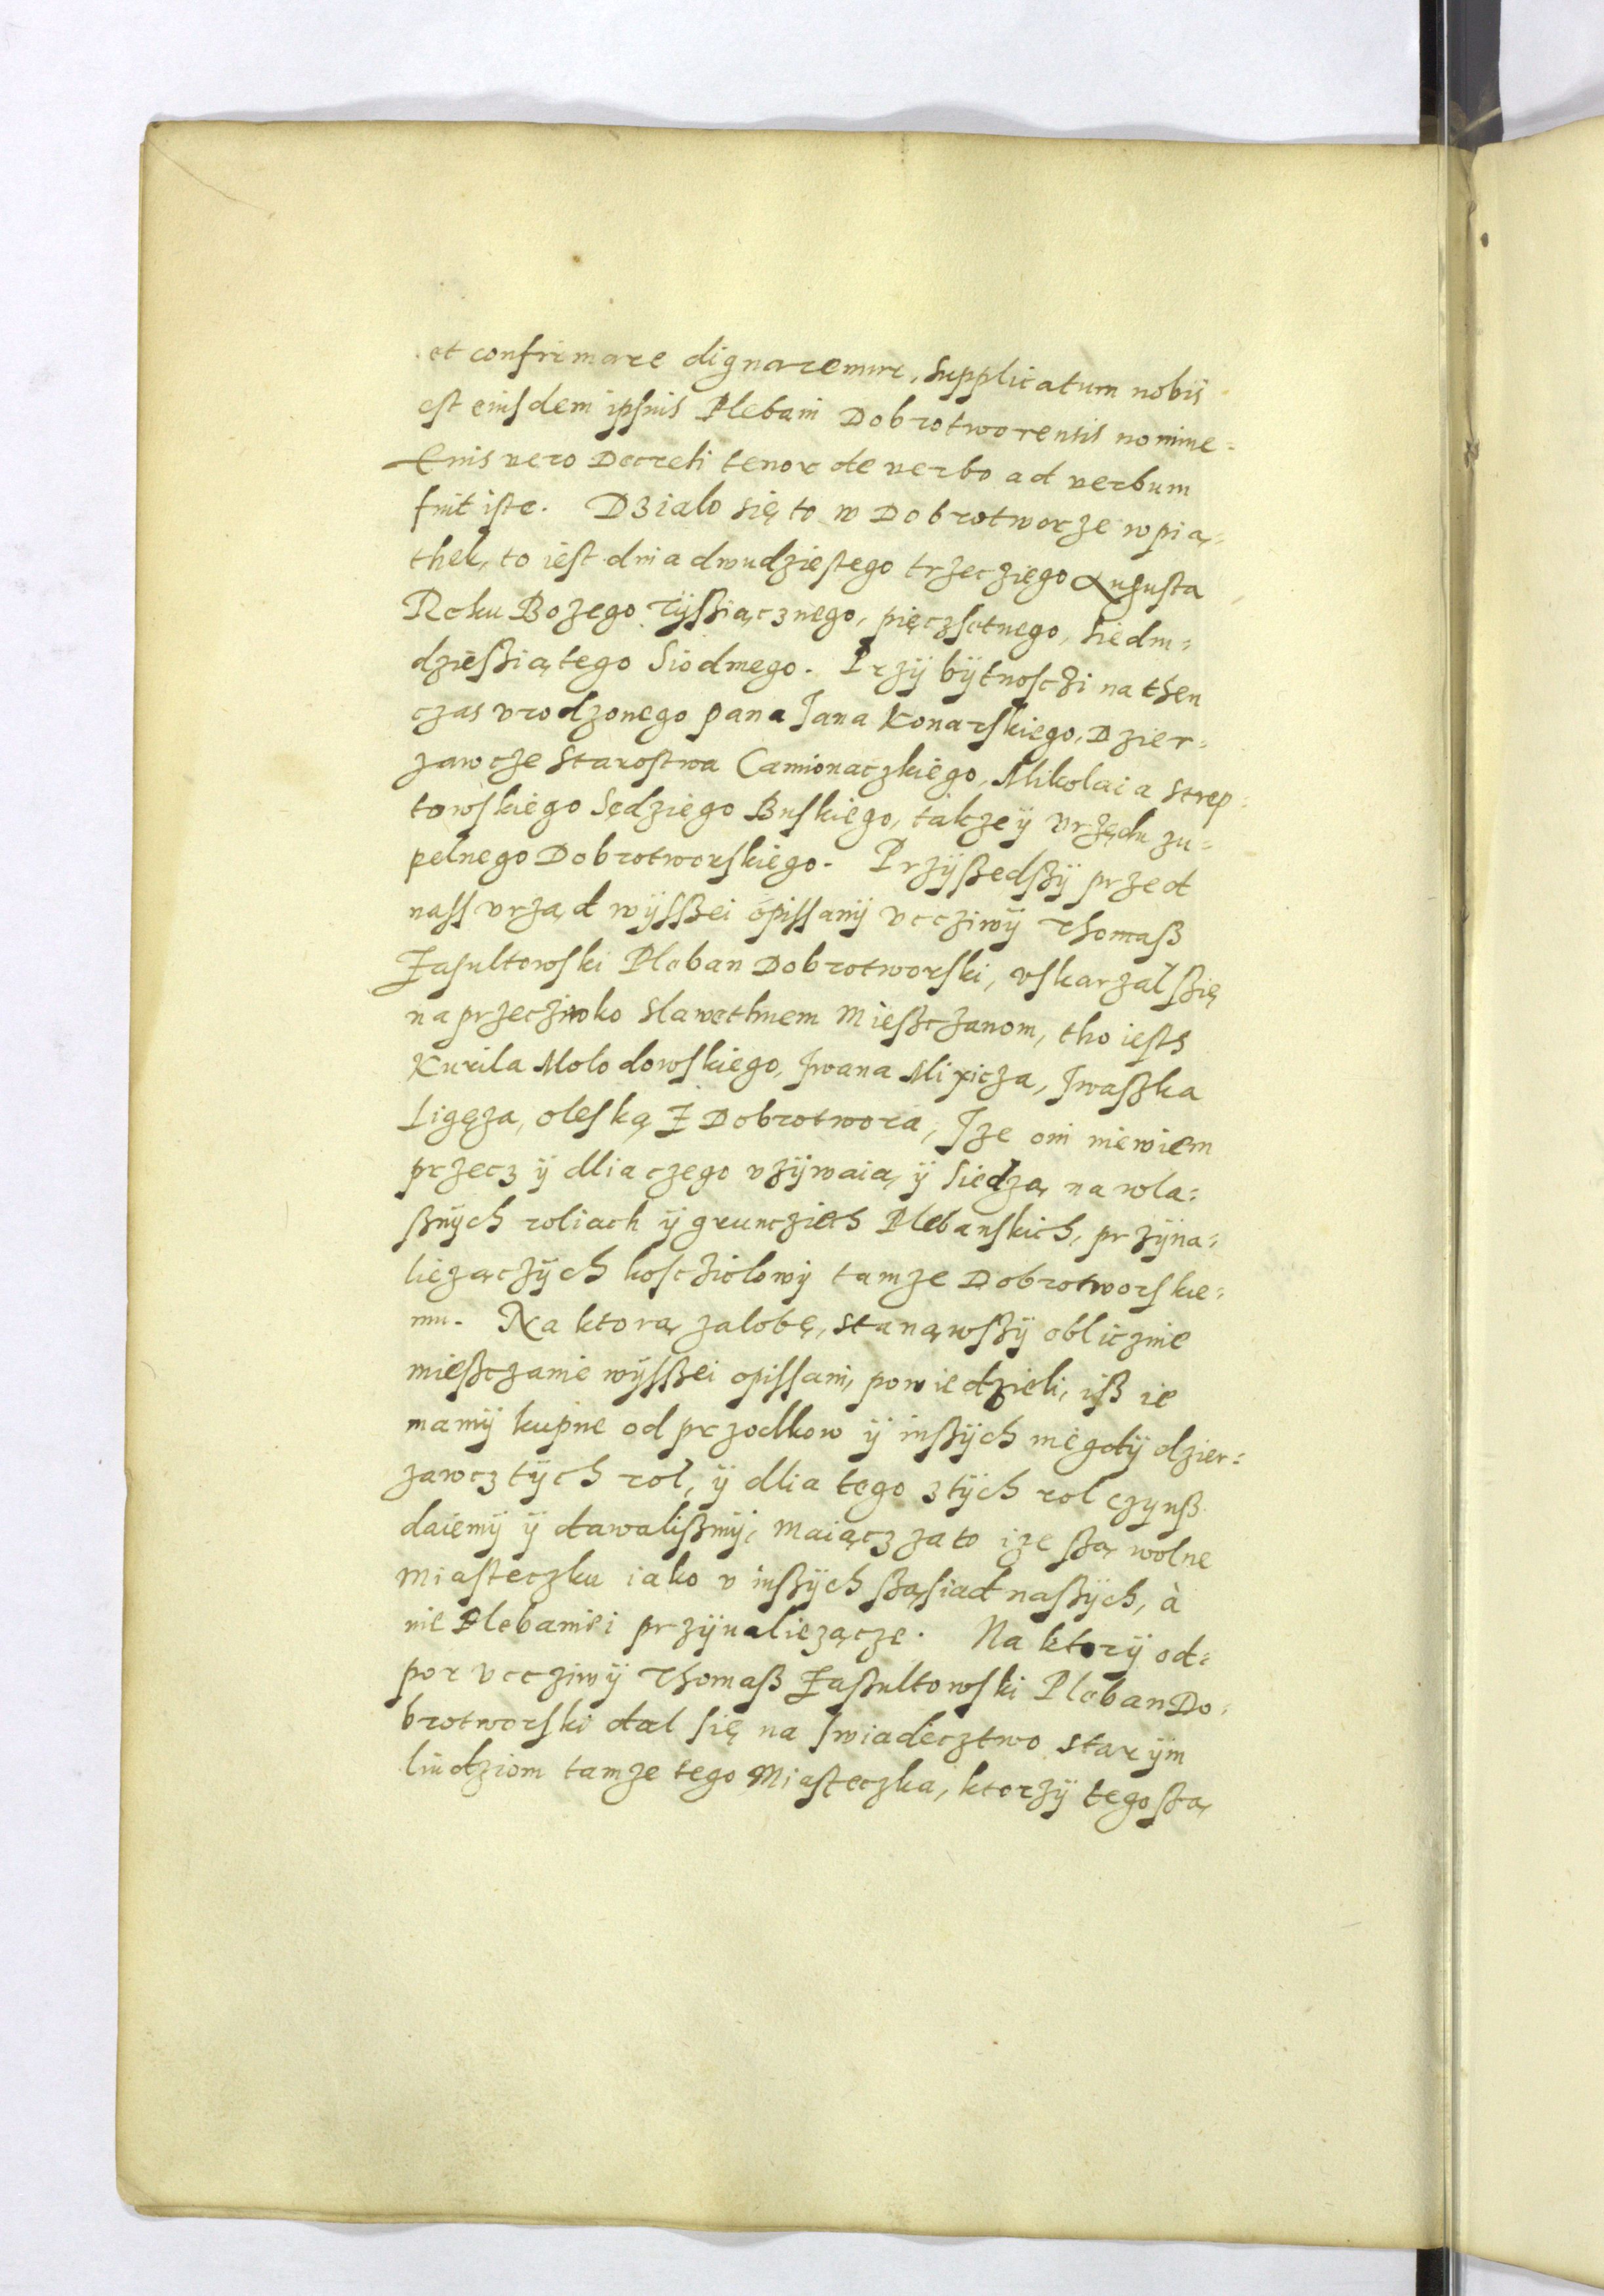 et confirmare dignaremur, supplicatum nobis
est eiusdem ipsius Plebani Dobrotworensis nomine.
Cuius vero Decreti tenor de verbo ad verbum
fuit iste. Dzialo się to w Dobrotworze w pią=
thek, to iest dnia dwudziestego trzecziego Augusta
Roku Bozego Tÿßiącznego, pięczsetnego, siedm=
dzießiątego Siodmego. Przÿ bÿtnosczi na then
czas vrodzonego pana Jana Konarskiego, Dzier=
zawcze Starostwa Camionaczkiego, Mikolaia Strep=
towskiego Sędziego Buskiego, takze ÿ vrzędu zu=
pelnego Dobrotworskiego. Przÿßedßÿ przed
nass vrząd wÿsßei opissanÿ vccziwÿ Thomaß
Zasultowski Pleban Dobrotworski, vskarzal ßię
na przecziwko Slawethnem Mießczanom, tho iesth
Kurila Molodowskiego, Jwana Mixicza, Jwaszka
Ligęza, oleską Z Dobrotwora, Jze oni niewiem
przecz ÿ dlia czego vzÿwaią ÿ Siedzą na wla=
ßnÿch roliach ÿ grunczieh Plebanskich, przÿna=
liezączÿch kosciolowÿ tamze Dobrotworskie=
mu. Na ktorą zalobę, stanąwßÿ oblicznie
mießczanie wÿsßei opissani, powiedzieli, iß ie
mamÿ kupne od przodkow ÿ inßÿch niegdÿ dzier=
zawcz tÿch rol, ÿ dlia tego z tÿch rol czynß
daiemÿ ÿ dawalißmÿ, maiącz za to ize ßą wolne
Miasteczku iako v inßÿch ßąsiad naßÿch, à
nie Plebaniei przÿnaliezącze. Na ktorÿ od=
por vccziwÿ Thomaß Zaßultowski Pleban Do=
brotworski dal się na swiadecztwo starÿm
liudziom tamze tego Miasteczka, ktorzÿ tego ßą